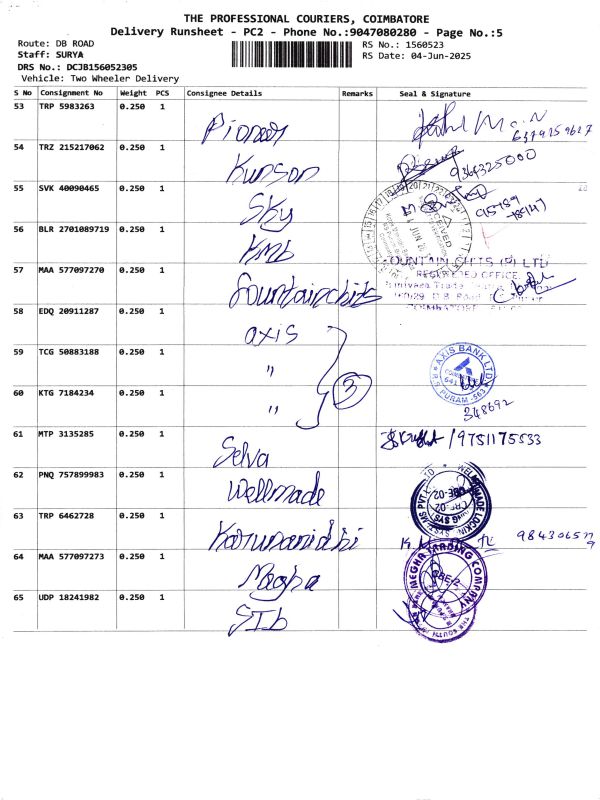 THE PROFESSIONAL COURIERS, COIMBATORE
Delivery Runsheet - PC2 - Phone No.:9047080280 - Page No.:5
Route: DB ROAD
Staff: SURYA
DRS No.: DCJB156052305
Vehicle: Two Wheeler Delivery
RS No.: 1560523
RS Date: 04-Jun-2025
S No Consignment No Weight PCS Consignee Details Remarks Seal & Signature
53 TRP 5983263 0.250 1 Pioneer 6379759627
54 TRZ 215217062 0.250 1 Kunson 9364325000
55 SVK 40090465 0.250 1 Sky
56 BLR 2701089719 0.250 1 KMB
57 MAA 577097270 0.250 1 Fountainchits FOUNTAIN CHITS (P) LTD
REGISTERED OFFICE
58 EDQ 20911287 0.250 1 axis
59 TCG 50883188 0.250 1 " AXIS BANK LTD
R.S. PURAM
60 KTG 7184234 0.250 1 " 3 348692
61 MTP 3135285 0.250 1 Selva 9751175533
62 PNQ 757899983 0.250 1 Wellmade
63 TRP 6462728 0.250 1 Karunanidhi
64 MAA 577097273 0.250 1 Megha MEGHA TRADING COMPANY
CBE-2
65 UDP 18241982 0.250 1 SIb